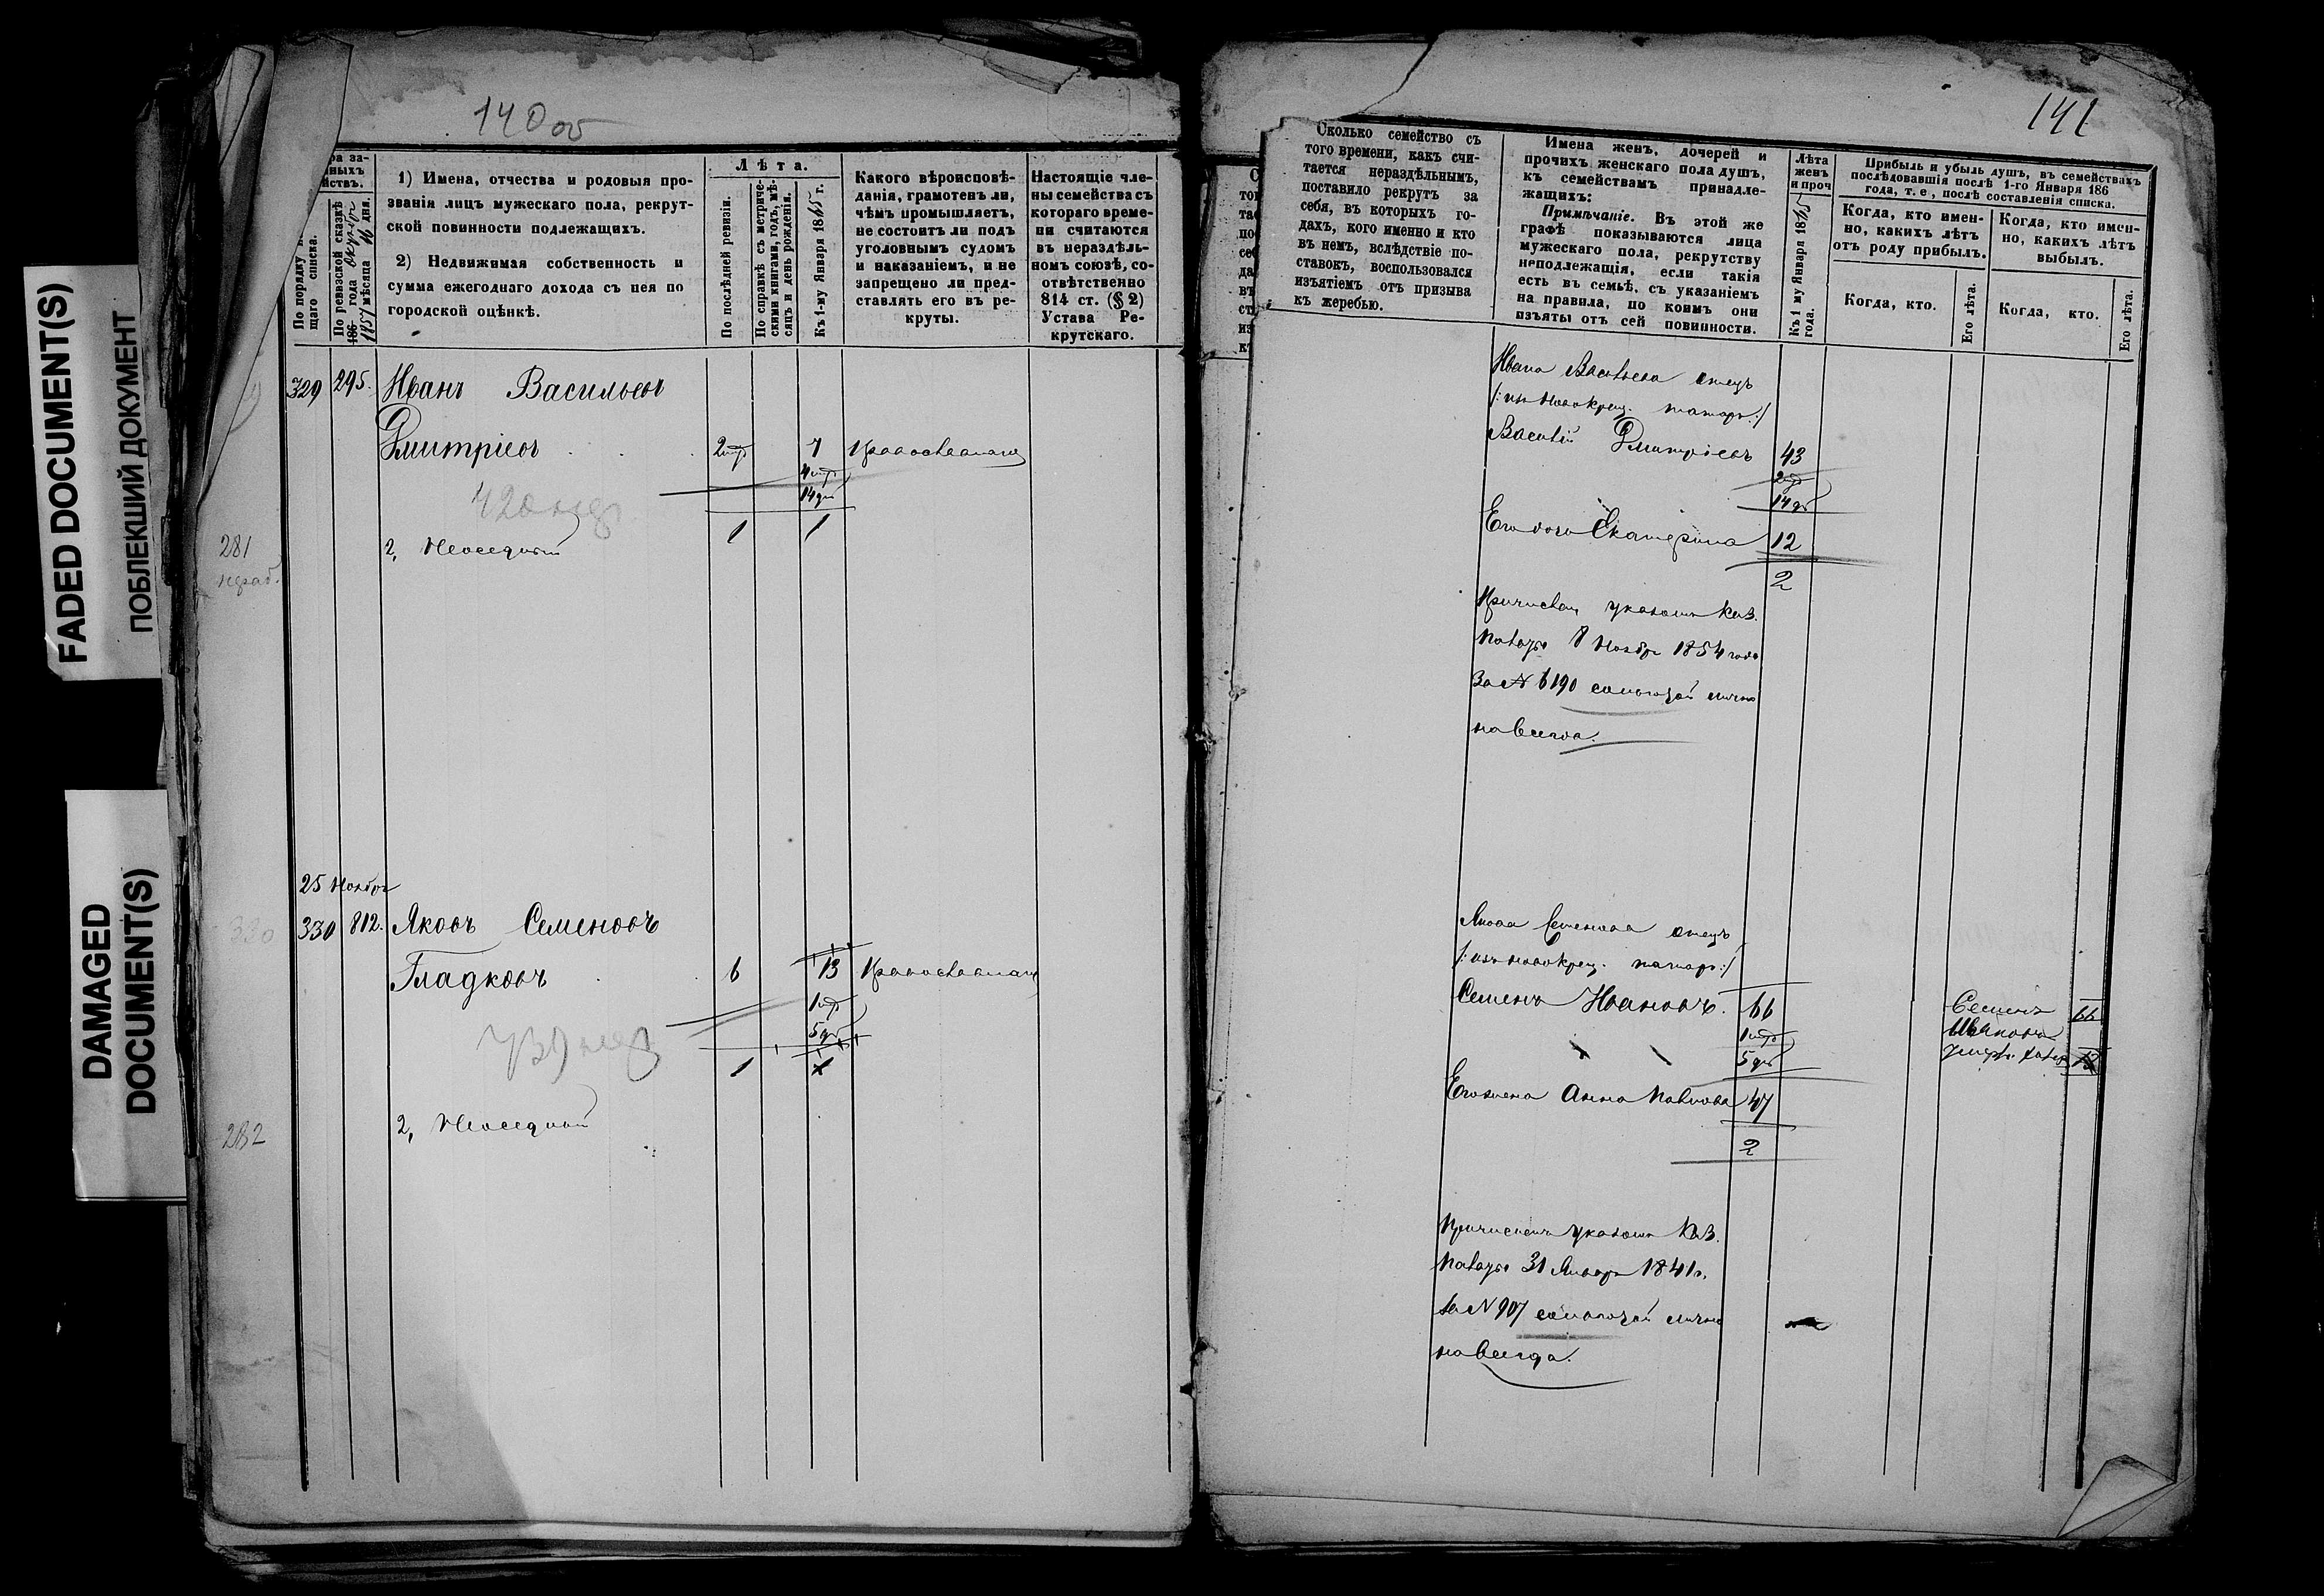 FADED DOCUMENT(S)
ПОБЛЕКШИЙ ДОКУМЕНТ
DAMAGED
DOCUMENT(S)
140 об
ра за-
ныхъ
йствъ.
По порядку н.
щаго списка.
По ревизской сказкѣ
186 года
1857 мѣсяца 16 дня.
1) Имена, отчества и родовыя про-
званія лицъ мужескаго пола, рекрут-
ской повинности подлежащихъ.
2) Недвижимая собственность и
сумма ежегоднаго дохода съ нея по
городской оцѣнкѣ.
Лѣта.
По послѣдней ревизіи.
По справкѣ съ метриче-
скими книгами, годъ, мѣ-
сяцъ и день рожденія.
Къ 1-му Января 1865 г.
Какого вѣроисповѣ-
данія, грамотенъ ли,
чѣмъ промышляетъ,
не состоитъ ли подъ
уголовнымъ судомъ
и наказаніемъ, и не
запрещено ли пред-
ставлять его въ ре-
круты.
Настоящіе чле-
ны семейства съ
котораго време-
ни считаются
въ нераздѣль-
номъ союзѣ, со-
отвѣтственно
814 ст. (§ 2)
Устава Ре-
крутскаго.
329 295. Иванъ Васильевъ
Дмитріевъ 2 7 Православный
14
1 1
281
2, Неоседлый
25 Ноября
330 330 812. Яковъ Семеновъ
Гладковъ 6 13 Православный
1
5
1 1
282 2, Неоседлый
141
Сколько семейство съ
того времени, какъ счи-
тается нераздѣльнымъ,
поставило рекрутъ за
себя, въ которыхъ го-
дахъ, кого именно и кто
въ немъ, вслѣдствіе по-
ставокъ, воспользовался
изъятіемъ отъ призыва
къ жеребью.
Имена женъ, дочерей и
прочихъ женскаго пола душъ,
къ семействамъ принадле-
жащихъ:
Примѣчаніе. Въ этой же
графѣ показываются лица
мужескаго пола, рекрутству
неподлежащія, если такія
есть въ семьѣ, съ указаніемъ
на правила, по коимъ они
изъяты отъ сей повинности.
Лѣта
женъ
и проч
Къ 1 му Января 1865
года.
Прибыль и убыль душъ, въ семействахъ
послѣдовавшія послѣ 1-го Января 186
года, т. е., послѣ составленія списка.
Когда, кто имен-
но, какихъ лѣтъ
отъ роду прибылъ.
Когда, кто имен-
но, какихъ лѣтъ
выбылъ.
Когда, кто.
Его лѣта.
Когда, кто.
Его лѣта.
Ивана Васильева отецъ
/: изъ новокрещ. татаръ :/
Василій Дмитріевъ 43
14
Его дочь Екатерина 12
2
Причислены указомъ Каз.
Палаты 8 Ноября 1854 года
За № 6190 со льготой лично
навсегда.
Якова Семенова отецъ
/: изъ новокрещ. татаръ :/
Семенъ Ивановъ. 66
1
5
Семенъ 66
Ивановъ
Его жена Анна Павлова 47
2
Причисленъ указомъ Каз.
Палаты 31 Января 1841 г.
за № 907 со льготой лично
навсегда.